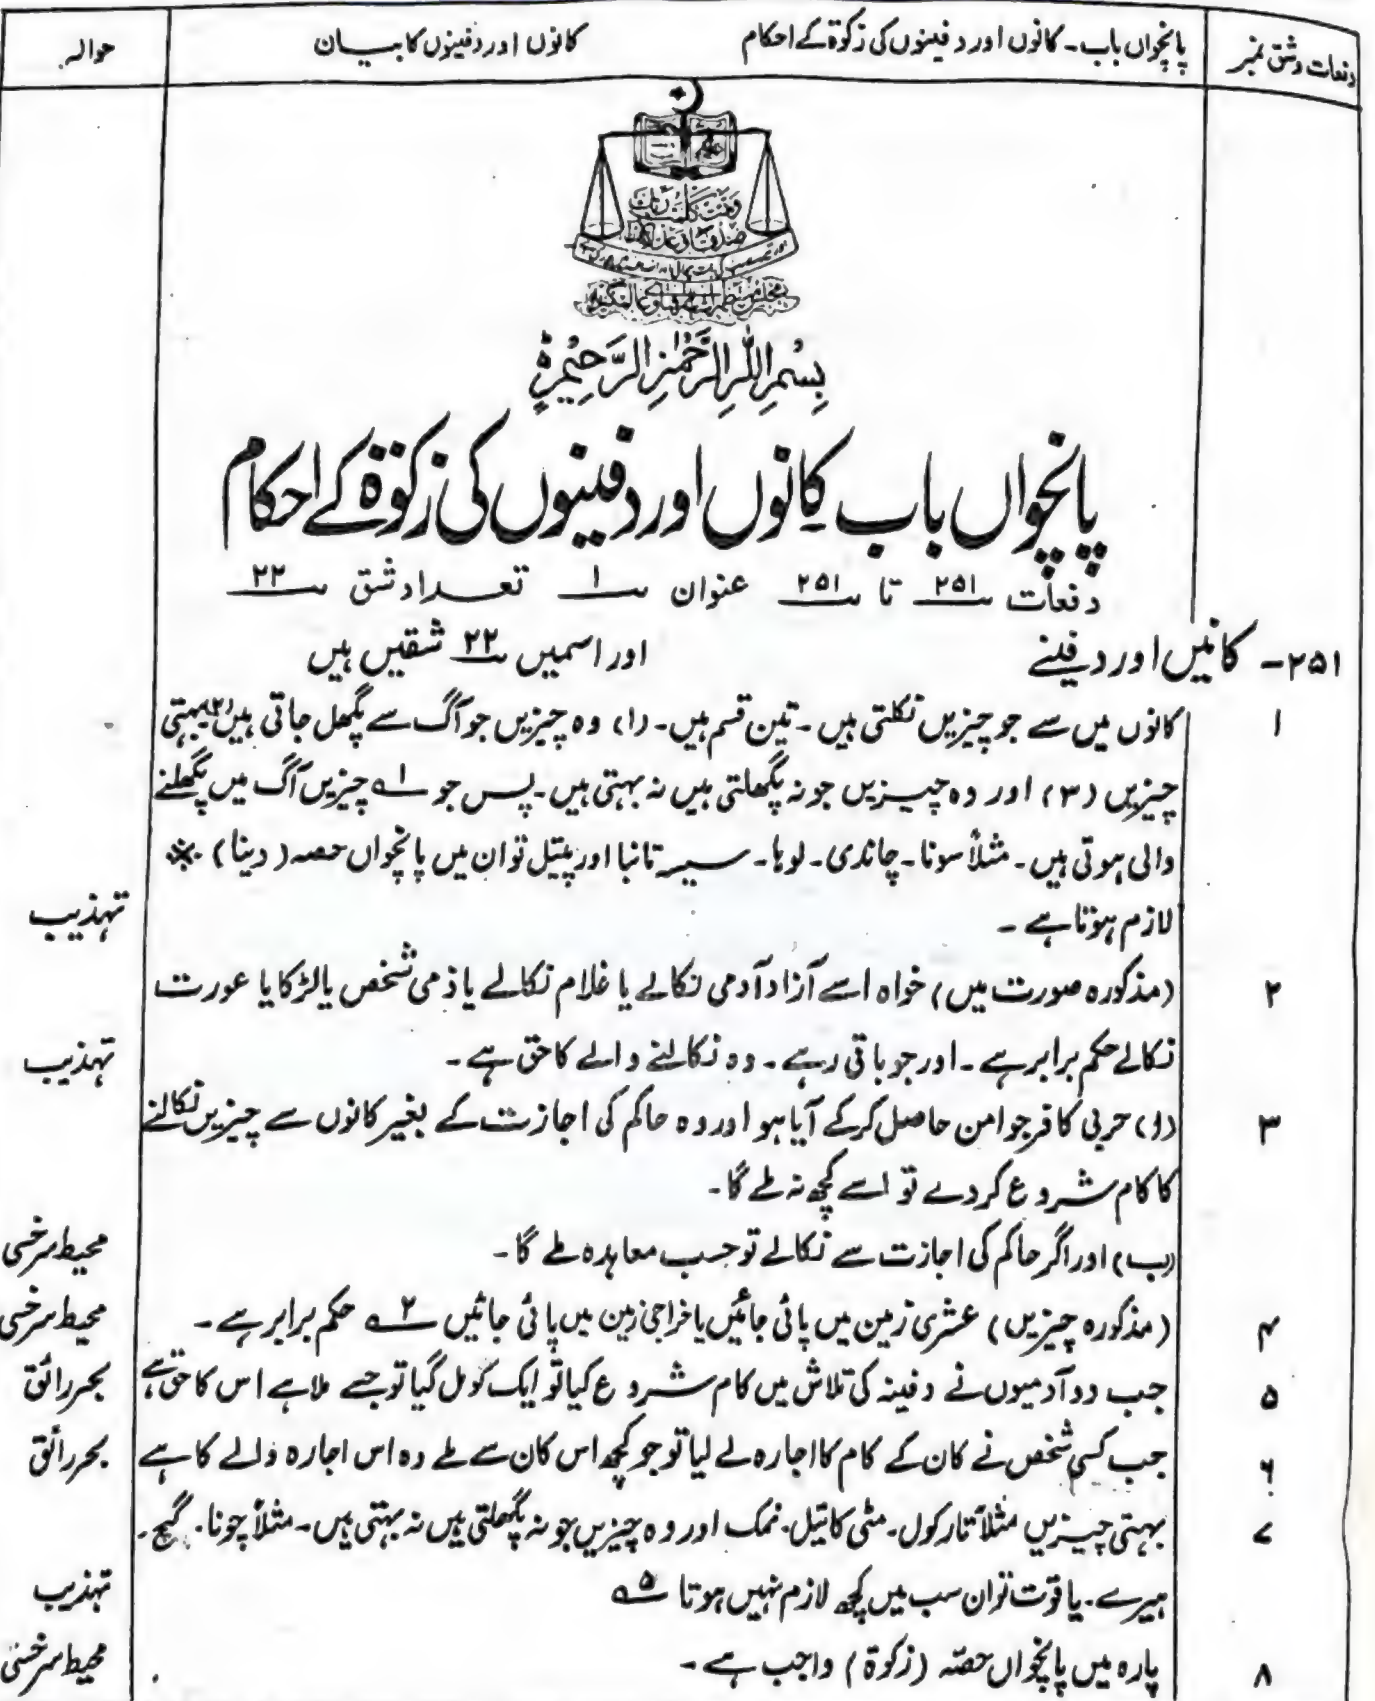 دفعات وشق نمبر
پانچواں باب۔ کانوں اور دفینوں کی زکوٰۃ کے احکام
کانوں اور دفینوں کا بیان
حوالہ
بِسْمِ اللّٰہِ الرَّحْمٰنِ الرَّحِیْمِ
پانچواں باب کانوں اور دفینوں کی زکوٰۃ کے احکام
دفعات ۲۵۱ تا ۲۵۱ عنوان ۱ تعداد شق ۲۲
۲۵۱- کانیں اور دفینے اور اسمیں ۲۲ شقیں ہیں
۱ کانوں میں سے جو چیزیں نکلتی ہیں۔ تین قسم ہیں۔ (۱) وہ چیزیں جو آگ سے پگھل جاتی ہیں (۲) بہتی
چیزیں (۳) اور وہ چیزیں جو نہ پگھلتی ہیں نہ بہتی ہیں۔ پس جو ۱ے چیزیں آگ میں پگھلنے
والی ہوتی ہیں۔ مثلاً سونا۔ چاندی۔ لوہا۔ سیسہ تانبا اور پیتل توان میں پانچواں حصہ (دینا)
لازم ہوتا ہے۔ تہذیب
۲ (مذکورہ صورت میں) خواہ اسے آزاد آدمی نکالے یا غلام نکالے یا ذمی شخص یا لڑکا یا عورت
نکالے حکم برابر ہے۔ اور جو باقی رہے۔ وہ نکالنے والے کا حق ہے۔ تہذیب
۳ (ا) حربی کافر جو امن حاصل کرکے آیا ہو اور وہ حاکم کی اجازت کے بغیر کانوں سے چیزیں نکالنے
کا کام شروع کردے تو اسے کچھ نہ ملے گا۔
(ب) اور اگر حاکم کی اجازت سے نکالے تو حسب معاہدہ ملے گا۔ محیط سرخسی
۴ (مذکورہ چیزیں) عشری زمین میں پائی جائیں یا خراجی زمین میں پائی جائیں ۲ے حکم برابر ہے۔ محیط سرخسی
۵ جب دو آدمیوں نے دفینہ کی تلاش میں کام شروع کیا تو ایک کو مل گیا تو جسے ملا ہے اس کا حق ہے بحر رائق
۶ جب کسی شخص نے کان کے کام کا اجارہ لے لیا تو جو کچھ اس کان سے ملے وہ اس اجارہ والے کا ہے بحر رائق
۷ بہتی چیزیں مثلاً تارکول۔ مٹی کا تیل۔ نمک اور وہ چیزیں جو نہ پگھلتی ہیں نہ بہتی ہیں۔ مثلاً چونا۔ گیچ۔
ہیرے۔ یاقوت توان سب میں کچھ لازم نہیں ہوتا ۵ے تہذیب
۸ پارہ میں پانچواں حصّہ (زکوٰۃ) واجب ہے۔ محیط سرخسی